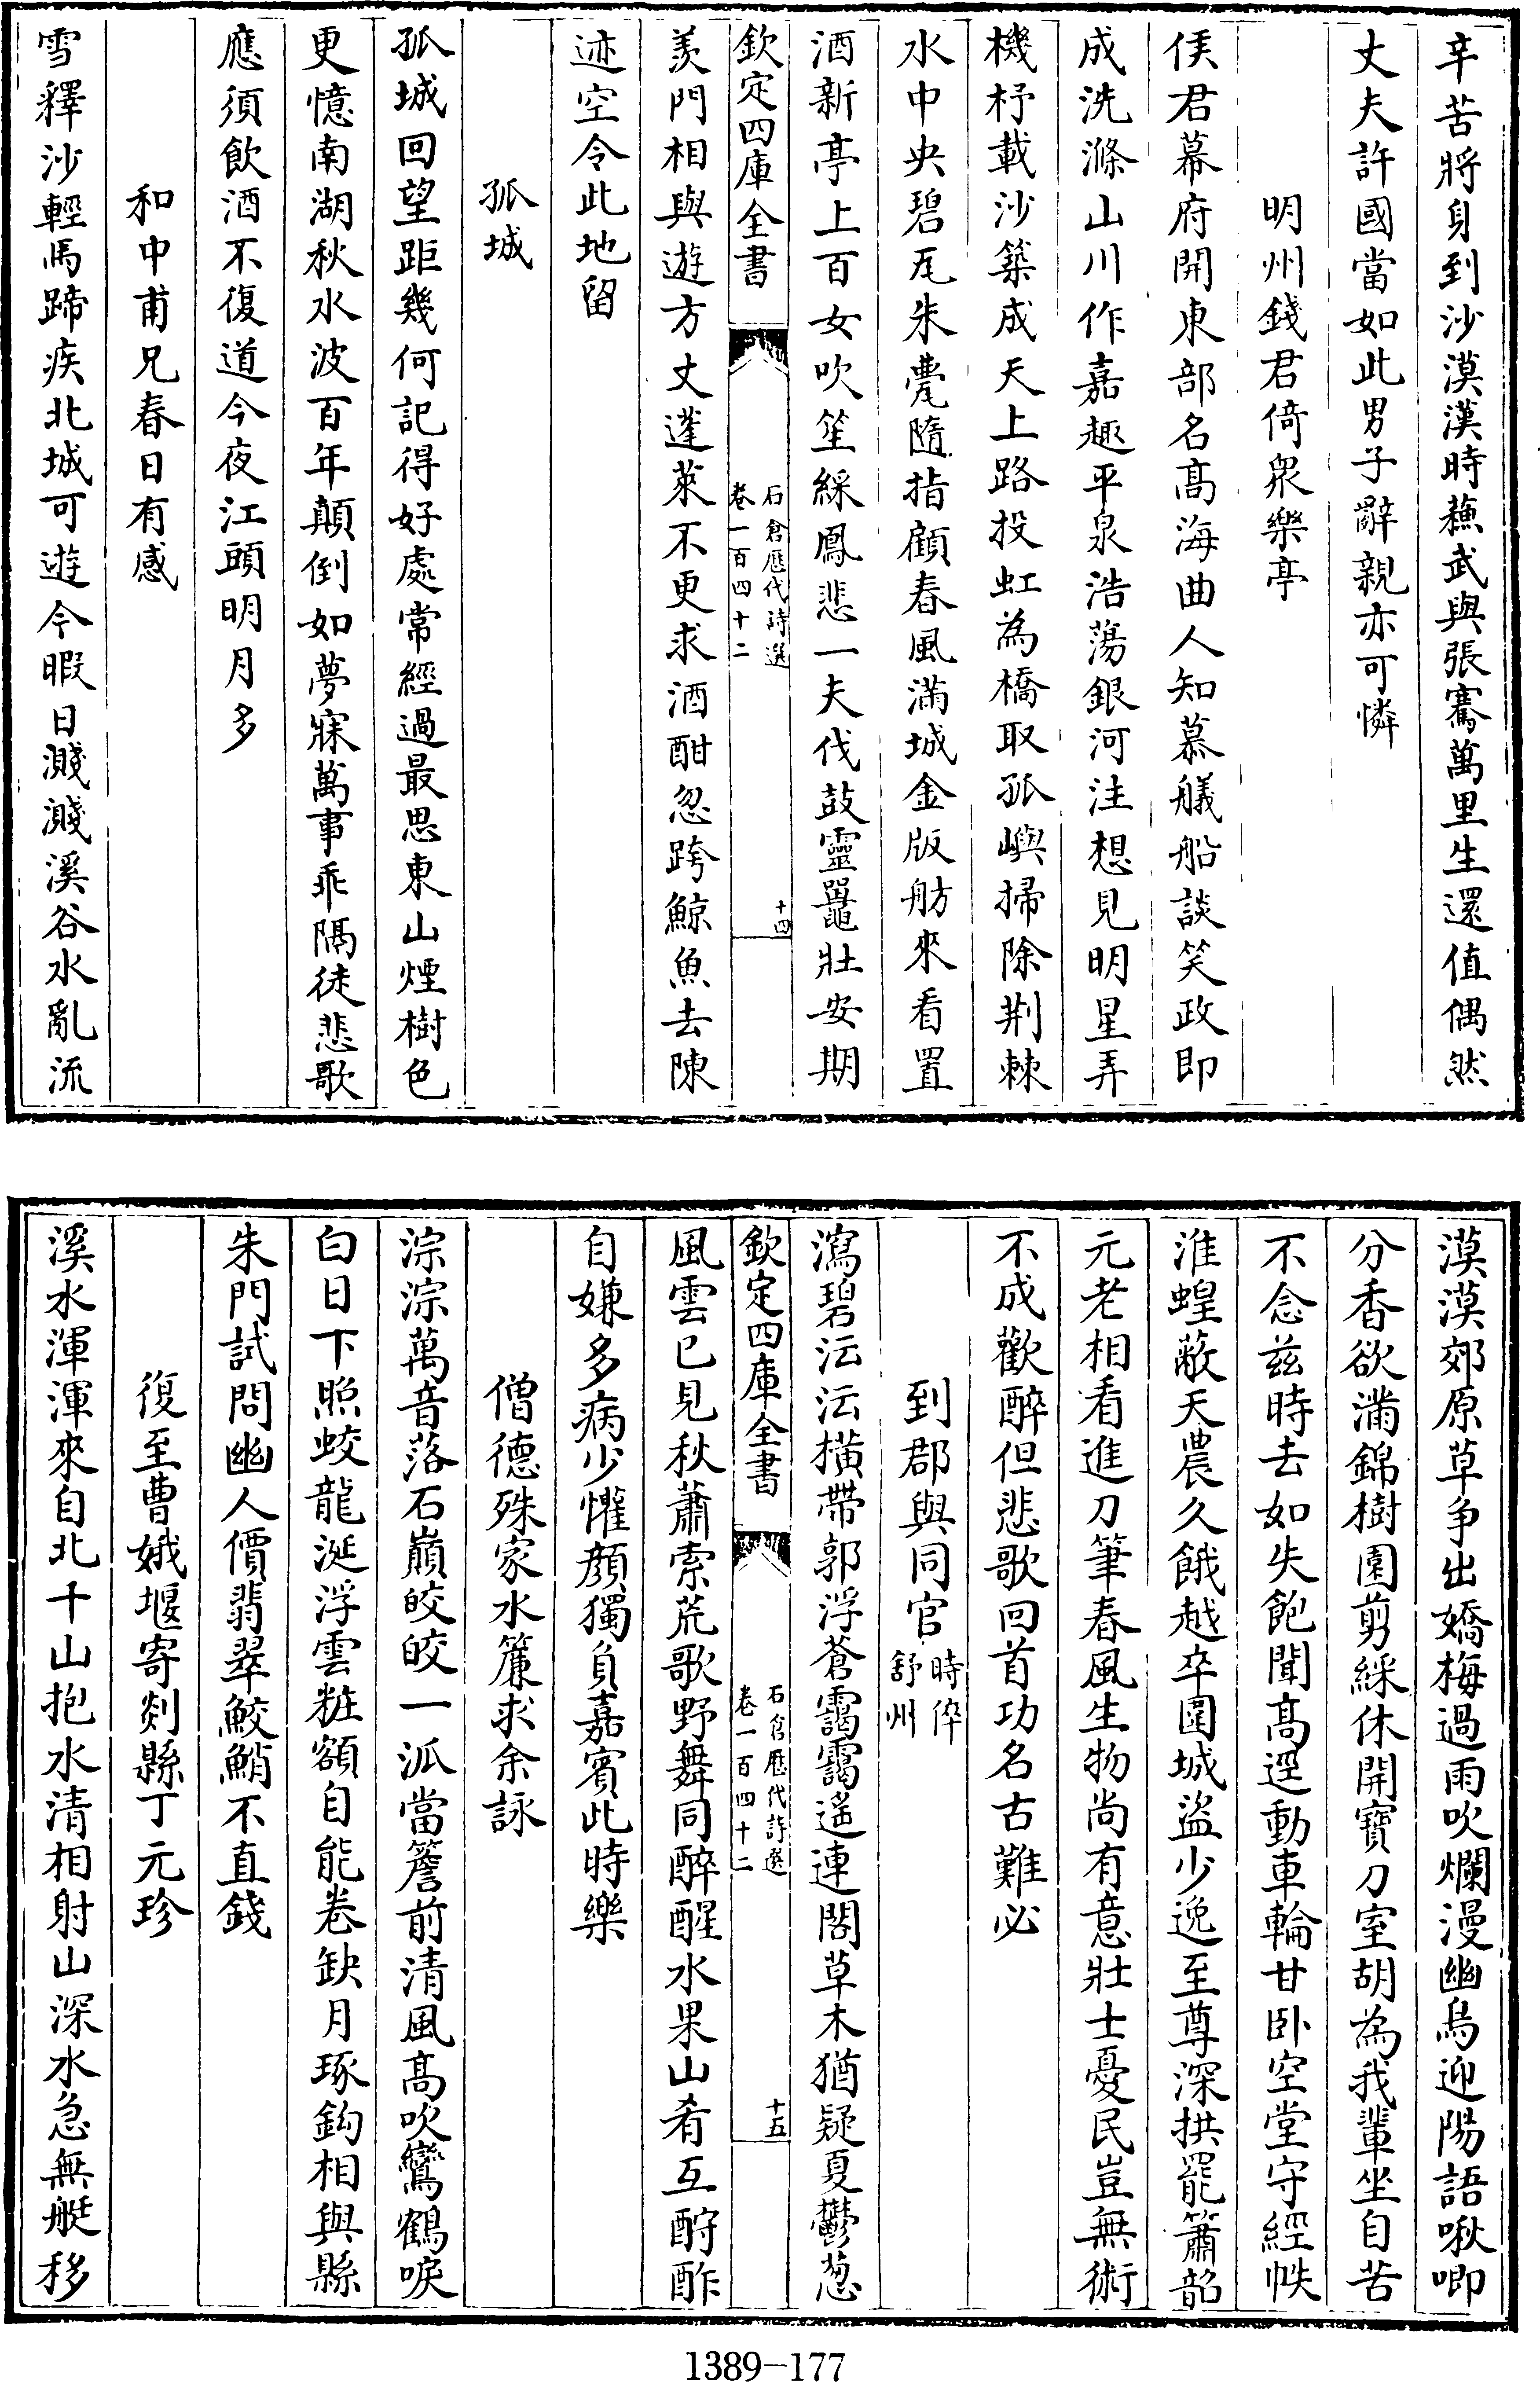 辛苦將身到沙漠漢時蘇武與張騫萬里生還值偶然
丈夫許國當如此男子辭親亦可憐
明州錢君倚衆樂亭
侯君幕府開東部名髙海曲人知慕艤船談笑政即
成洗滌山川作嘉趣平泉浩蕩銀河注想見明星弄
機杼載沙築成天上路投虹為橋取孤嶼掃除荆棘
水中央碧瓦朱甍隨指顧春風滿城金版舫來看置
酒新亭上百女吹笙綵鳳悲一夫伐鼓靈鼉壯安期
欽定四庫全書
石倉歷代詩選
卷一百四十二
十四
羨門相與遊方丈蓬萊不更求酒酣忽跨鯨魚去陳
迹空令此地留
孤城
孤城回望距幾何記得好處常經過最思東山煙樹色
更憶南湖秋水波百年顛倒如夢寐萬事乖隔徒悲歌
應須飲酒不復道今夜江頭明月多
和中甫兄春日有感
雪釋沙輕馬蹄疾北城可遊今暇日濺濺溪谷水亂流
漠漠郊原草争出嬌梅過雨吹爛漫幽鳥迎陽語啾唧
分香欲滿錦樹園剪綵休開寶刀室胡為我輩坐自苦
不念兹時去如失飽聞髙逕動車輪甘卧空堂守經帙
淮蝗蔽天農久餓越卒圍城盜少逸至尊深拱罷簫韶
元老相看進刀筆春風生物尚有意壯士憂民豈無術
不成歡醉但悲歌回首功名古難必
到郡與同官時倅舒州
瀉碧沄沄橫帶郭浮蒼靄靄遙連閣草木猶疑夏鬱葱
欽定四庫全書
石倉歷代詩選
卷一百四十二
十五
風雲已見秋蕭索荒歌野舞同醉醒水果山肴互酧酢
自嫌多病少懽顔獨負嘉賓此時樂
僧德殊家水簾求余詠
淙淙萬音落石巔皎皎一派當簷前清風髙吹鸞鶴唳
白日下照蛟龍涎浮雲粧額自能卷缺月琢鈎相與縣
朱門試問幽人價翡翠鮫鮹不直錢
復至曹娥堰寄剡縣丁元珍
溪水渾渾來自北千山抱水清相射山深水急無艇移
1389—177